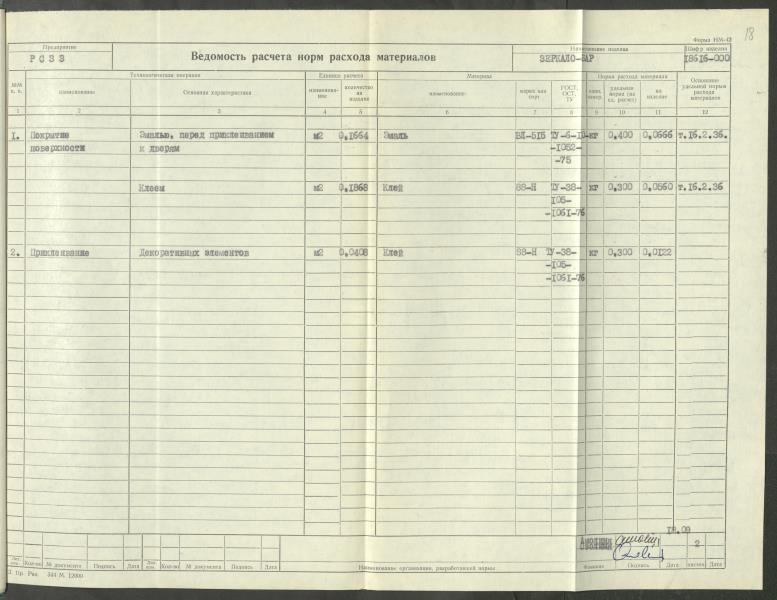 18
Форма НМ-42
Предприятие
РСЗЗ
Ведомость расчета норм расхода материалов
Наименование изделия
ЗЕРКАЛО-БАР
Шифр изделия
18616-000
№№ п. п.
Технологическая операция
Единица расчета
Материал
Норма расхода материала
Основание удельной нормы расхода материалов
наименование
Основная характеристика
наименова-ние
количество на изделие
наименование
марка или сорт
ГОСТ, ОСТ, ТУ
един. измер.
удельная норма (на ед. расчет)
на изделие
1 2 3 4 5 6 7 8 9 10 11 12
1. Покрытие Эмалью, перед приклеиванием м2 0,1664 Эмаль ТУ-6-10- кг 0,400 0,0666 т.16.2.36.
поверхности к дверям -1052-
-75
Клеем м2 0,1868 Клей 88-Н ТУ-38- кг 0,300 0,0560 т.16.2.36
105-
-1061-76
2. Приклеивание Декоративных элементов м2 0,0408 Клей 88-Н ТУ-38- кг 0,300 0,0122
-105-
-1061-76
18.09
2
Кол-во № документа Подпись Дата Кол-во № документа Подпись Дата Наименование организации, разработавшей нормы Фамилия Подпись Дата листов Дата
344 М. 12000